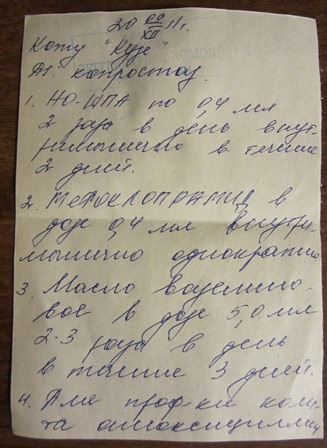 20 09/XII 11г.
Коту "Кузе"
Дз. копростаз.
1. НО-ШПА по 0,4 мл
2 раза в день внут-
римышечно в течение
2 дней.
2. МЕТОКЛОПРАМИД в
дозе 0,4 мл внутри-
мышечно однократно
3. Масло вазелино-
вое в дозе 5,0 мл
2-3 раза в день
в течение 3 дней.
4. Для проф-ки коли-
та амоксициллин